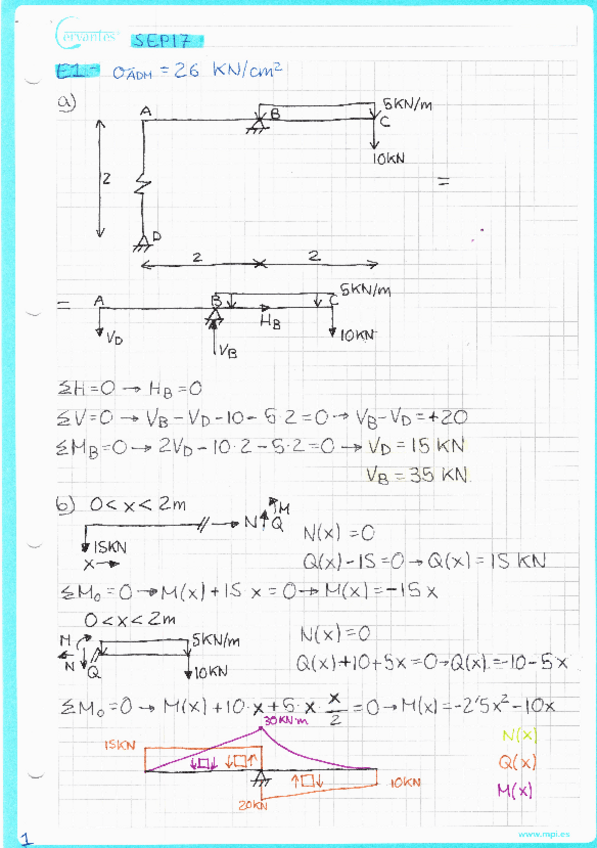 Cervantes
SEP17
E1- σADM = 26 KN/cm²
a)
A
B
5KN/m
C
10KN
2
=
D
2
2
=
A
B
5KN/m
C
HB
VD
10KN
VB
ΣH=0 → HB=0
ΣV=0 → VB-VD-10-5·2=0 → VB-VD=+20
ΣMB=0 → 2VD-10·2-5·2=0 → VD = 15 KN
VB = 35 KN
b) 0<x<2m
M
N
Q
15KN
x→
N(x)=0
Q(x)-15=0 → Q(x)=15 KN
ΣMo=0 → M(x)+15x=0 → M(x)=-15x
0<x<2m
M
N
Q
5KN/m
10KN
N(x)=0
Q(x)+10+5x=0 → Q(x)=-10-5x
ΣMo=0 → M(x)+10·x+5·x·x/2=0 → M(x)=-2'5x²-10x
30KN·m
15KN
20KN
10KN
N(x)
Q(x)
M(x)
1
www.rapi.es